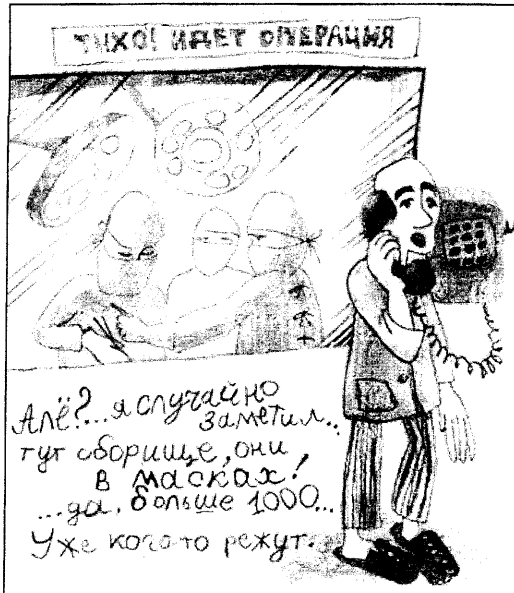 ТИХО! ИДЕТ ОПЕРАЦИЯ
Алё?...я случайно
заметил..
тут сборище, они
в масках!
...да, больше 1000...
Уже кого-то режут.